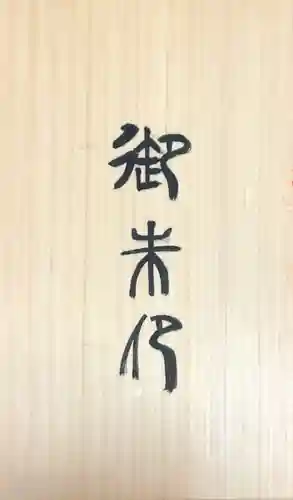 御朱印